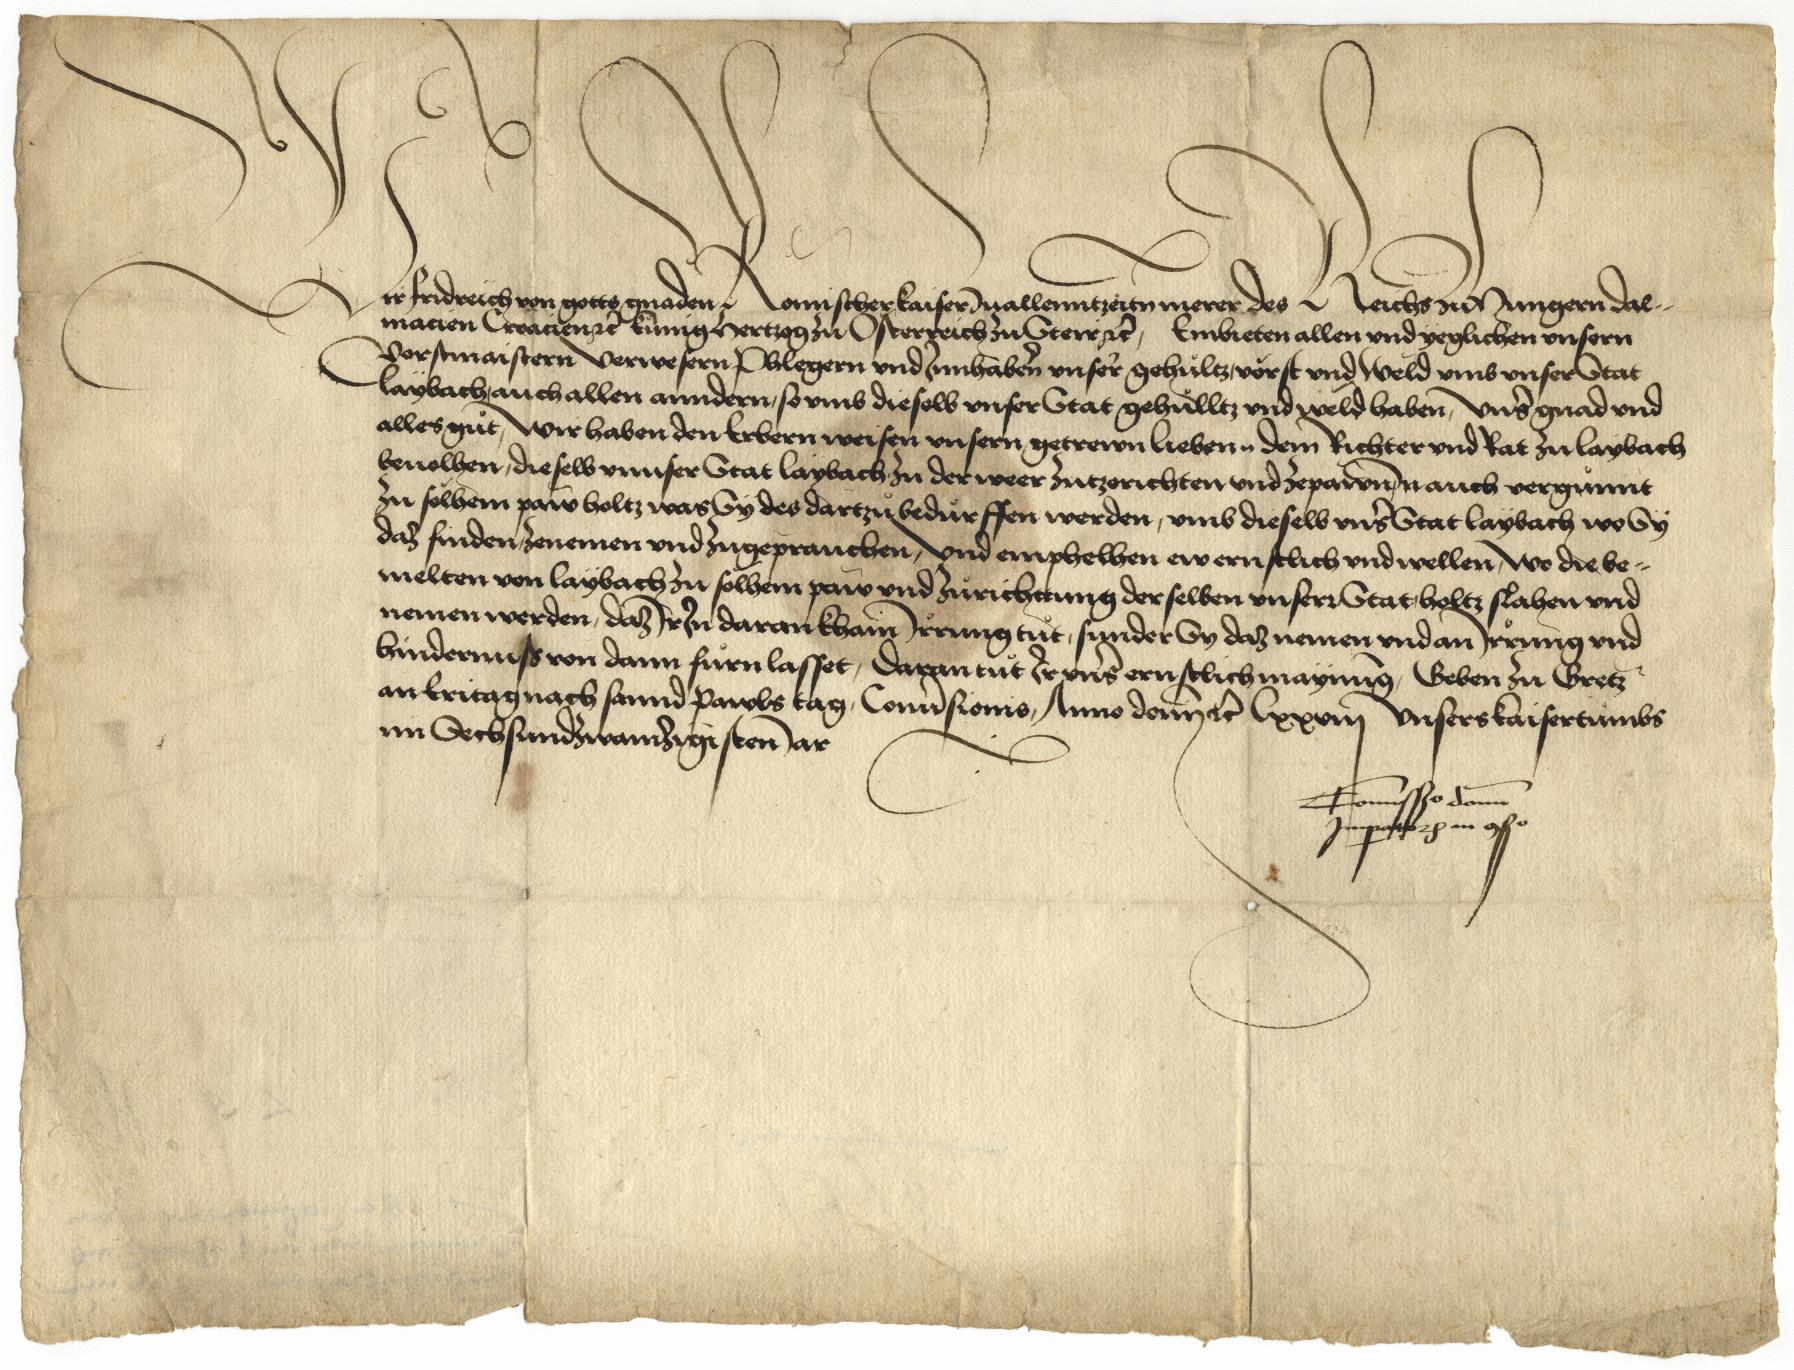 Wir Fridreich von gotts gnaden Romischer kaiser zuallenntzeitn merer des Reichs zu Hungern Dal-
macien Croacien etc̃ kunig Hertzog zu Osterreich zu Steir etc̃, Embieten allen vnd yeglichen vnsern
Vorstmaistern Verwesern Phlegern vnd Innhabern̄ vnser gehültz, vörst vnd Weld vmb vnser Stat
laybach, auch allen anndern, so vmb dieselb vnser Stat gehülltz vnd weld haben, Vnser̃ gnad vnd
alles gůt, Wir haben den Erbern weisen vnsern getrewn lieben .. dem Richter vnd Rat zu laybach
beuolhen, dieselb vnnser Stat laybach zu der weer zutzerichten vnd zepawn̄, In auch vergünnt
zu solhem paw holtz was Sy des dartzů bedürffen werden, vmb dieselb vnser̃ Stat laybach wo Sy
daz finden, zenemen vnd zugeprauchen, Vnd emphelhen ew ernstlich vnd wellen, Wo die be-
melten von laybach zu solhem paw vnd zurichttung derselben vnserr Stat, holtz slahen vnd
nemen werden, daz Ir In daran khain Irrung tůt, sunder Sy daz nemen vnd an Irrung vnd
hindernuss von dann fůrn lasset, Daran tůt Ir vnser̃ ernstlich maynūg, Geben zu Gretz
an Eritag nach sannd Pawls tag, Conuersionis, Anno domı̃ etc̃ lxxviij Vnsers kaisertumbs
im Sechsundzwainzigisten Jar
Com̄issio domı̃
Imperatoris in 9sio